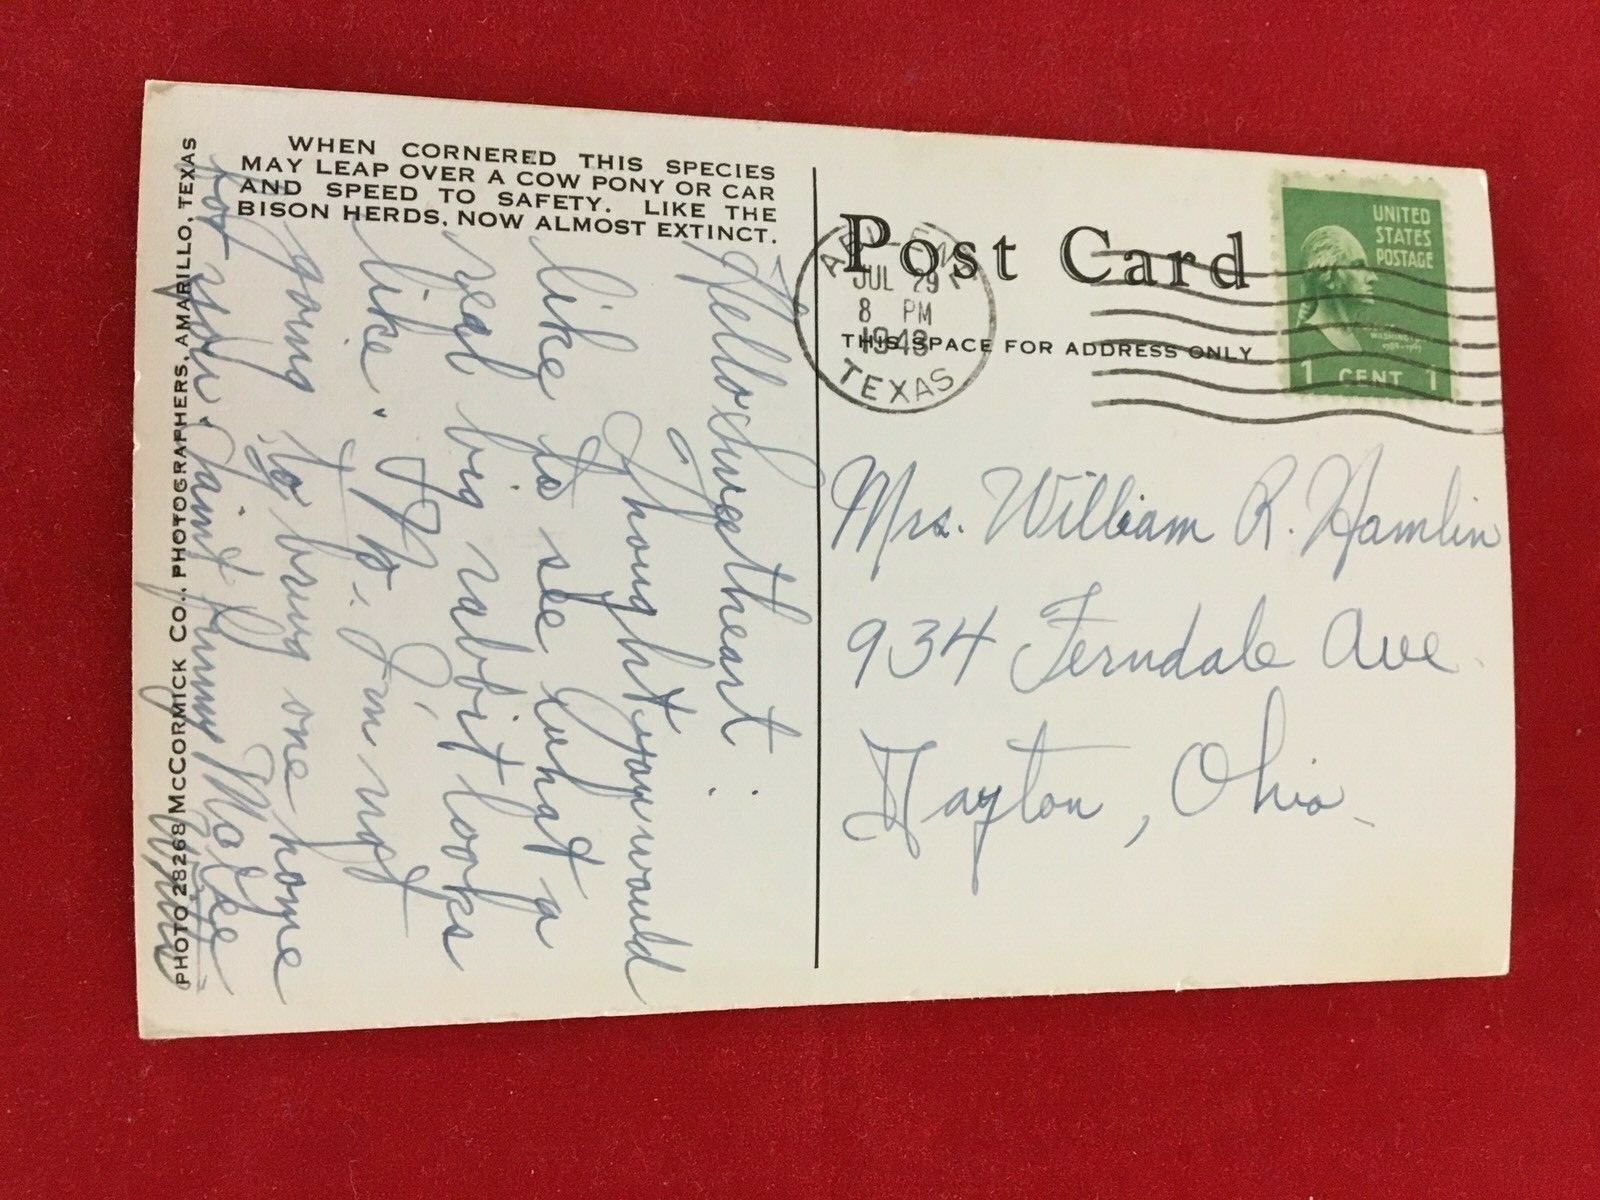 WHEN CORNERED THIS SPECIES
MAY LEAP OVER A COW PONY OR CAR
AND SPEED TO SAFETY. LIKE THE
BISON HERDS, NOW ALMOST EXTINCT.
PHOTO 28268 McCORMICK CO., PHOTOGRAPHERS, AMARILLO, TEXAS
Hello Sweetheart:
Thought you would
like to see what a
real big rabbit looks
like. P.S. I'm not
going to bring one home
for you. Aint funny McGee
Post Card
THIS SPACE FOR ADDRESS ONLY
JUL 29
8 PM
1948
TEXAS
UNITED
STATES
POSTAGE
1 CENT 1
Mrs. William R. Hamlin
934 Ferndale Ave.
Dayton, Ohio.